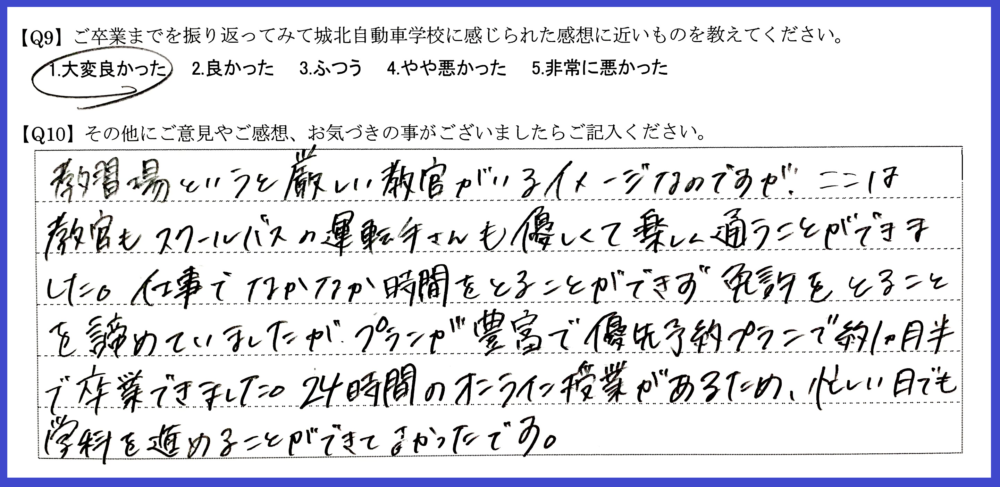 【Q9】ご卒業までを振り返ってみて城北自動車学校に感じられた感想に近いものを教えてください。
1.大変良かった 2.良かった 3.ふつう 4.やや悪かった 5.非常に悪かった
【Q10】その他にご意見やご感想、お気づきの事がございましたらご記入ください。
教習場というと厳しい教官がいるイメージなのですが、ここは
教官もスクールバスの運転手さんも優しくて楽しく通うことができま
した。仕事でなかなか時間をとることができず免許をとること
を諦めていましたが、プランが豊富で優先予約プランで約1ヵ月半
で卒業できました。24時間のオンライン授業があるため、忙しい日でも
学科を進めることができてよかったです。